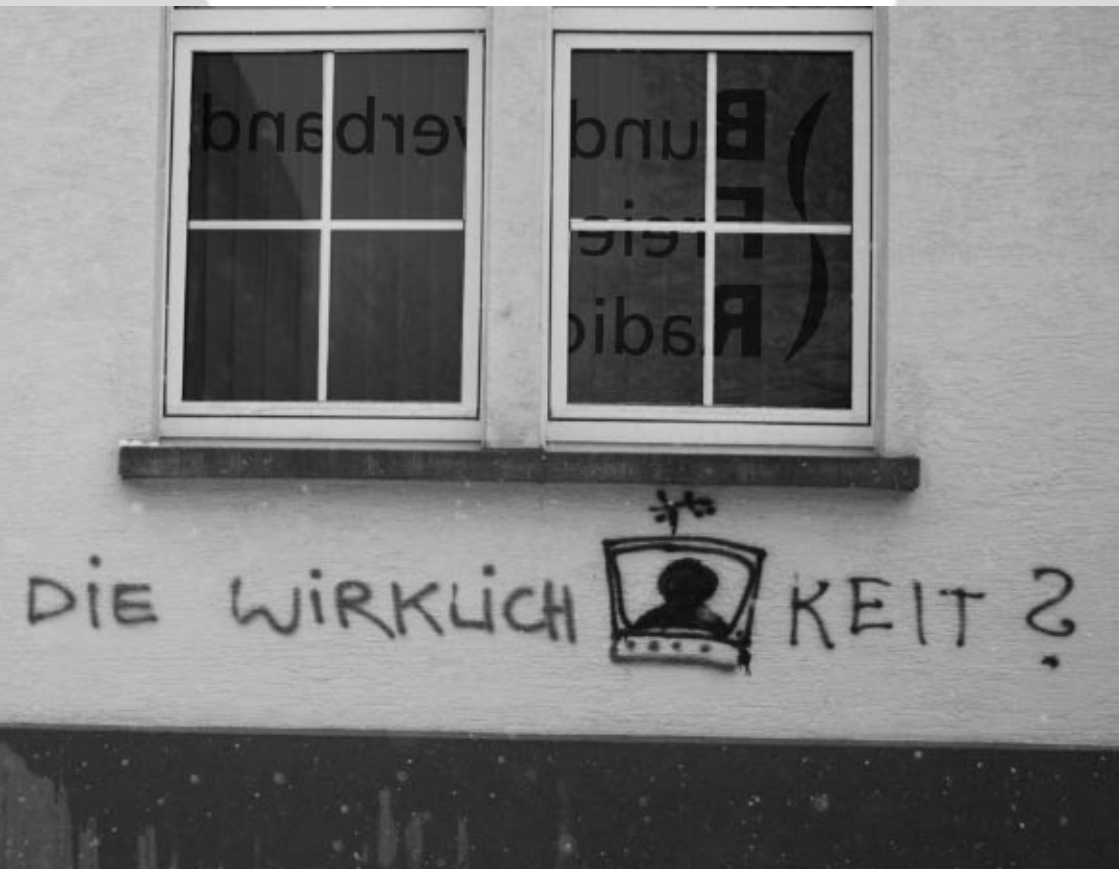 Bund verband
Freie
Radio
DiE WiRKLiCH KEIT ?